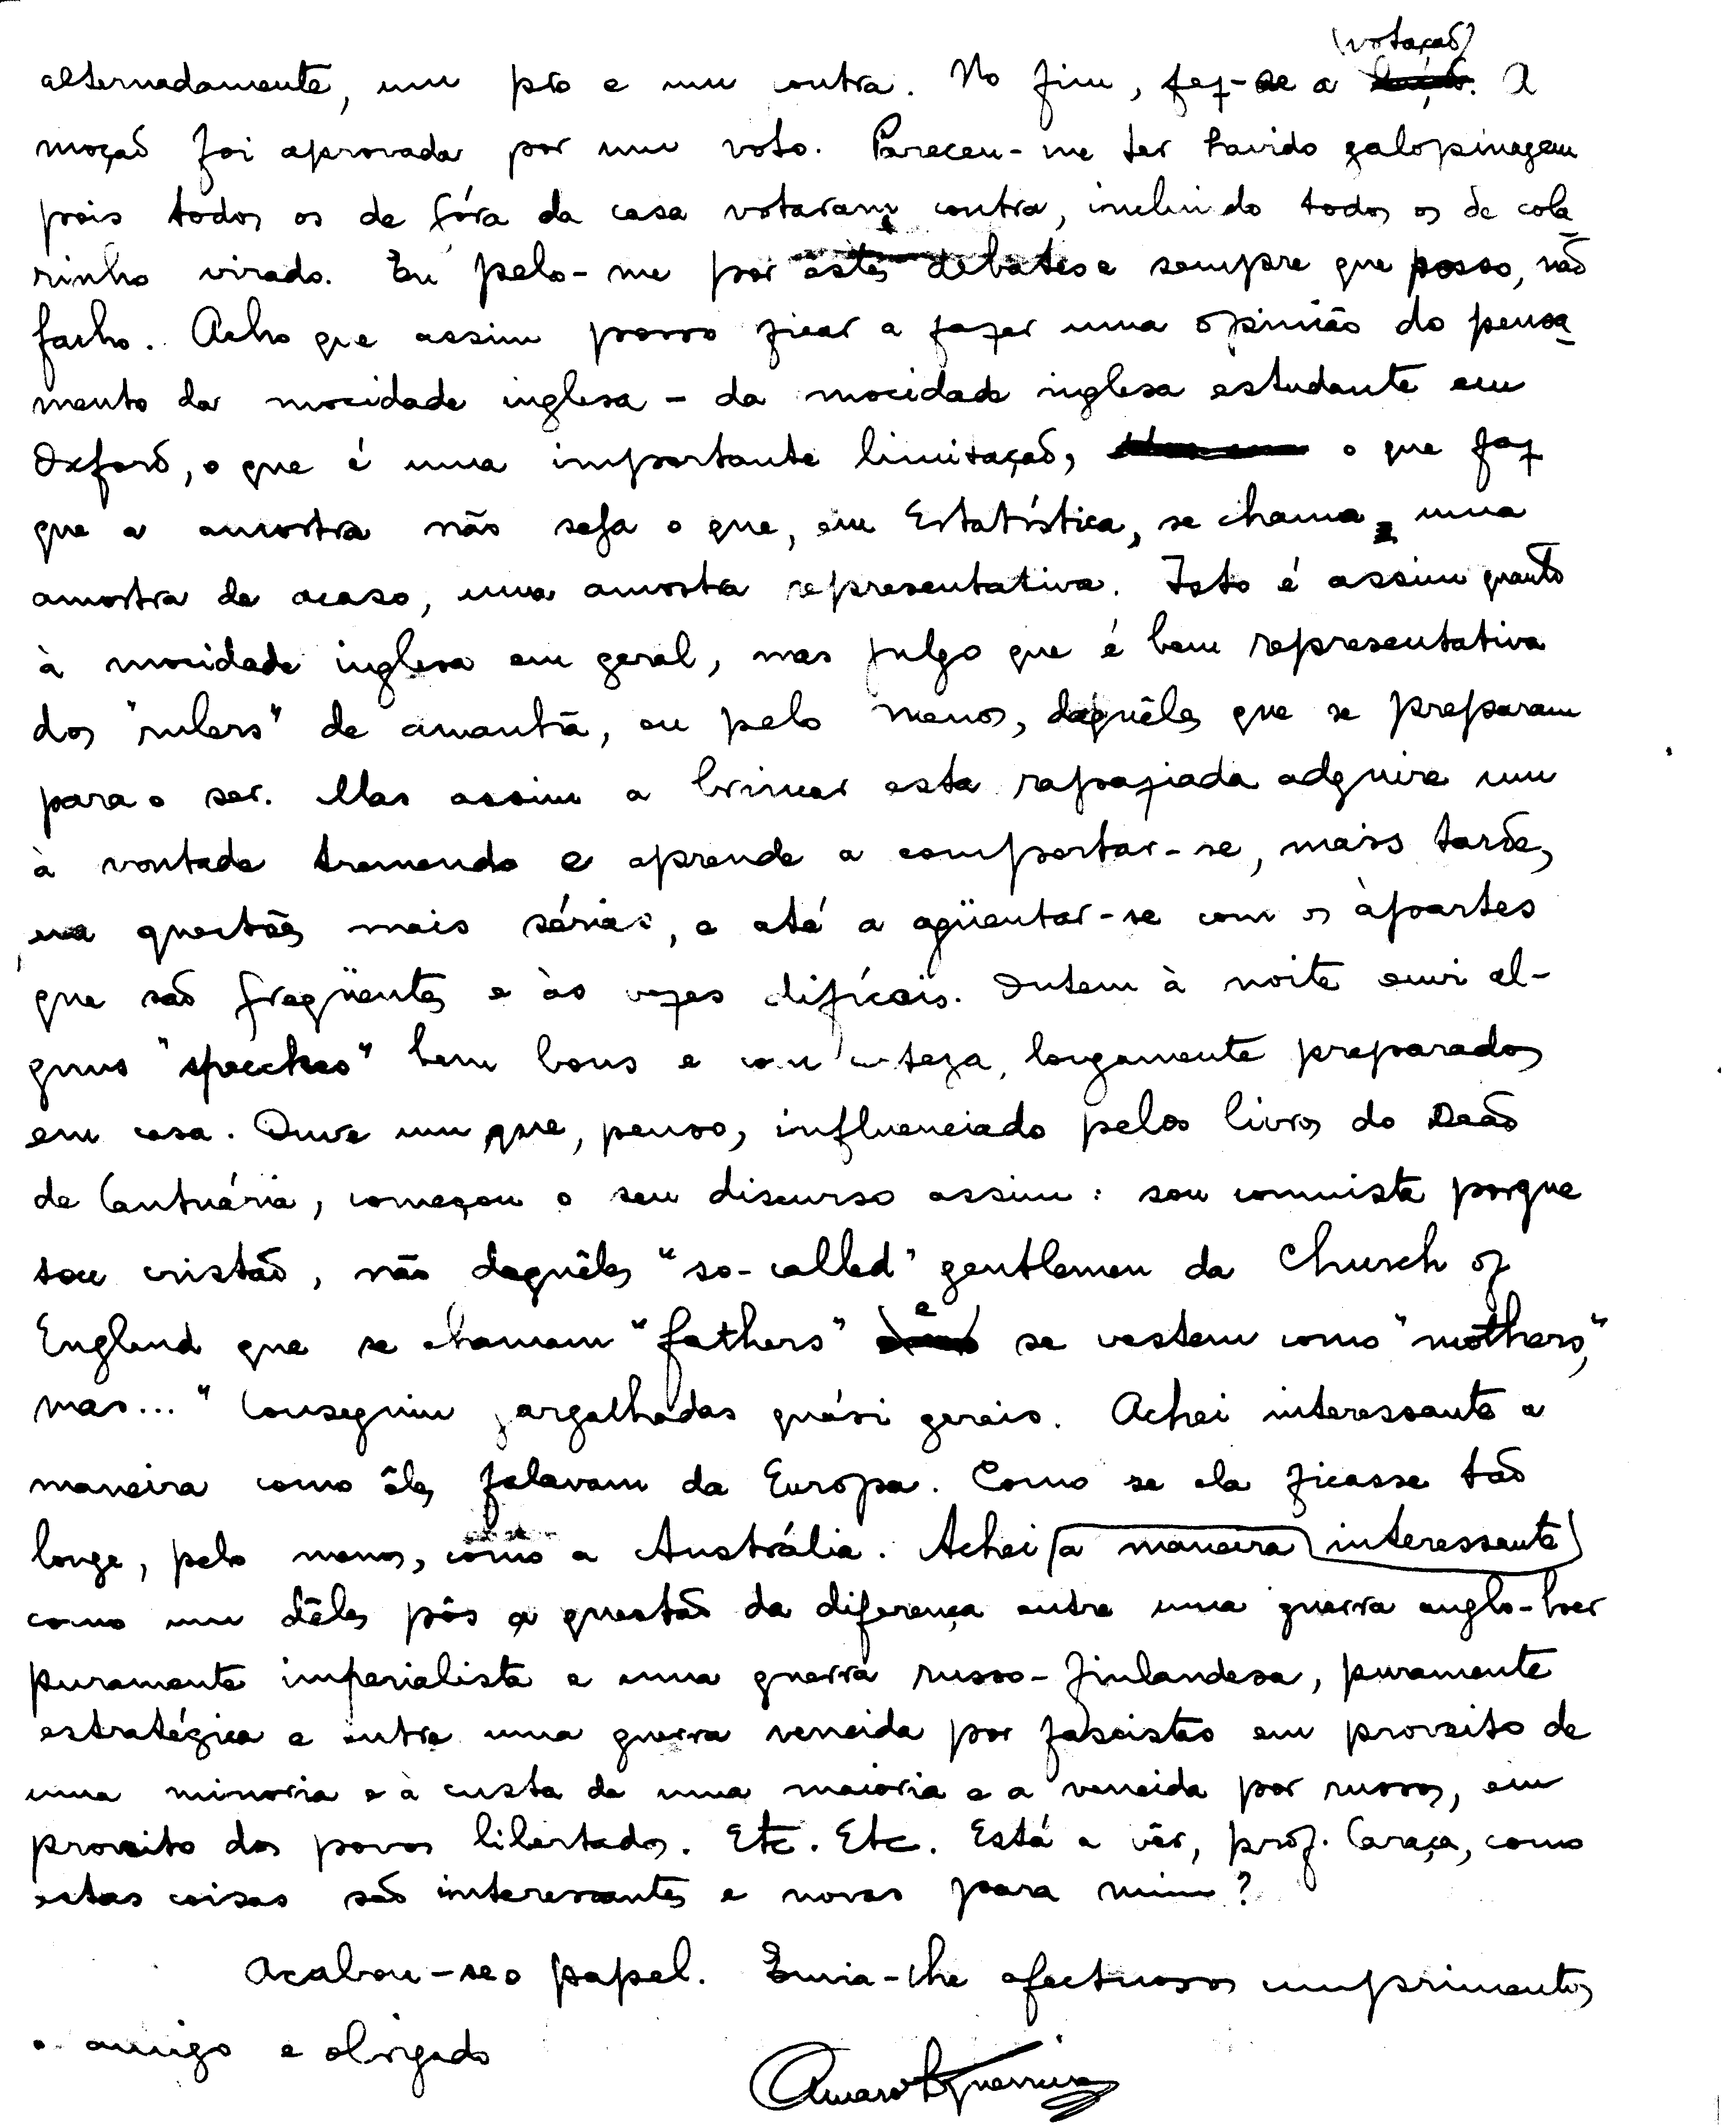 (votação)
alternadamente, um pro e um contra. No fim, fez-se a. A
moção foi aprovada por um voto. Pareceu-me ter havido galopinagem
pois todos os de fóra da casa votaram contra, incluindo todos os de cola
rinho virado. Eu pelo-me por êstes debates e sempre que posso, não
falho. Acho que assim posso ficar a fazer uma opinião do pensa
mento da mocidade inglesa - da mocidade inglesa estudante em
Oxford, o que é uma importante limitação, o que faz
que a amostra não seja o que, em Estatística, se chama uma
amostra de acaso, uma amostra representativa. Isto é assim quanto
à mocidade inglesa em geral, mas julgo que é bem representativa
dos "rulers" de amanhã, ou pelo menos, daquêles que se preparam
para o ser. Mas assim a brincar esta rapaziada adquire um
à vontade tremendo e aprende a comportar-se, mais tarde,
em questões mais sérias, e até a agüentar-se com os àpartes
que são freqüentes e às vezes difíceis. Ontem à noite ouvi al-
guns "speeches" bem bons e com certeza, longamente preparados
em casa. Ouve um que, penso, influenciado pelos livros do Deão
de Cantuária, começou o seu discurso assim: sou comunista porque
sou cristão, não daquêles "so-called" gentlemen da Church of
England que se chamam "fathers" e se vestem como "mothers,"
mas..." Conseguiu gargalhadas quási gerais. Achei interessante a
maneira como êles falavam da Europa. Como se ela ficasse tão
longe, pelo menos, como a Austrália. Achei a maneira interessante
como um dêles pôs a questão da diferença entre uma guerra anglo-boer
puramente imperialista e uma guerra russo-finlandesa, puramente
estratégica e entre uma guerra vencida por fascistas em proveito de
uma minoria e à custa de uma maioria e a vencida por russos, em
proveito dos povos libertados. Etc. Etc. Está a vêr, prof. Caraça, como
estas coisas são interessantes e novas para mim?
Acabou-se o papel. Envia-lhe afectuosos cumprimentos
o amigo e obrigado
Amaro Guerreiro